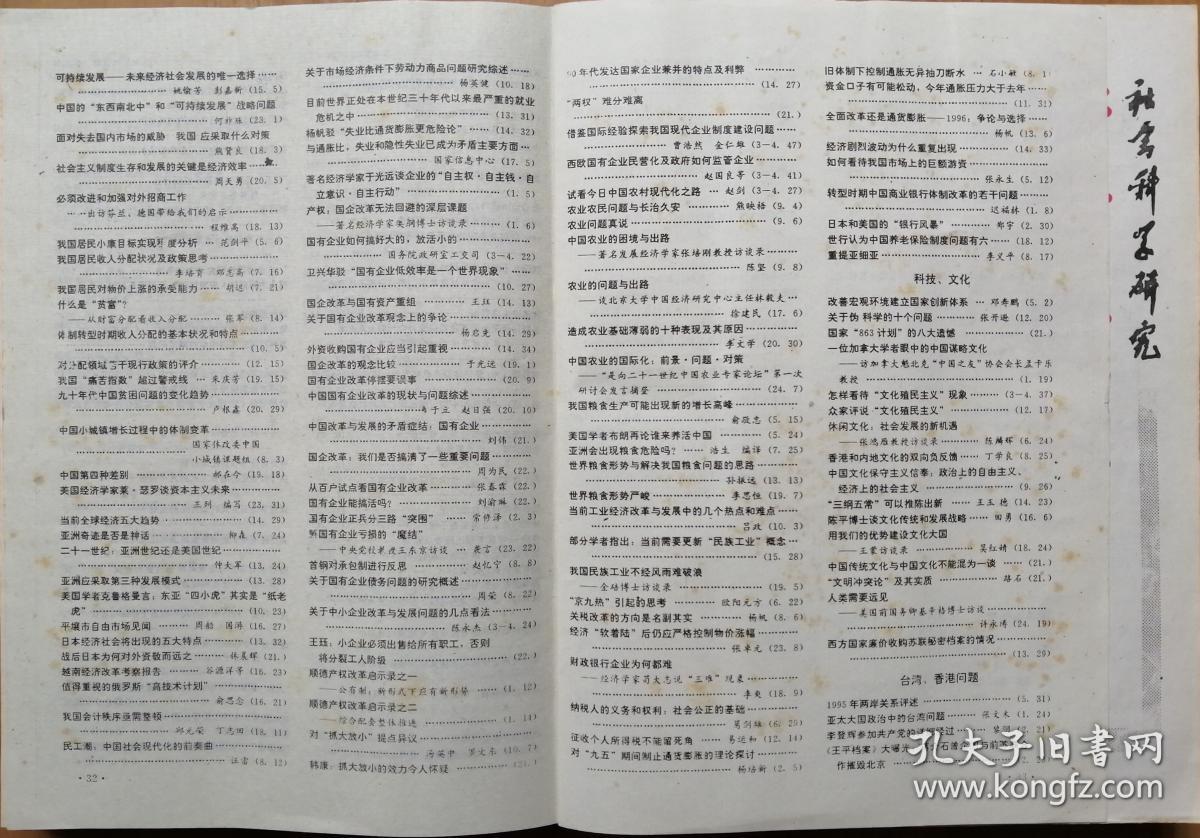 可持续发展——未来经济社会发展的唯一选择……
姚愉芳 彭嘉新 (15. 5)
中国的“东西南北中”和“可持续发展”战略问题
(23. 1)
面对失去国内市场的威胁 我国应采取什么对策
熊贤良 (18. 3)
社会主义制度生存和发展的关键是经济效率……
周天勇 (20. 5)
必须改进和加强对外招商工作
——出访芬兰、德国带给我们的启示………
程维高 (18. 13)
我国居民小康目标实现程度分析 … 范剑平 (5. 6)
我国居民收入分配状况及政策思考………
李培育 邓志高 (7. 16)
我国居民对物价上涨的承受能力…… 胡迟 (7. 21)
什么是“贫富”?
——从财富分配看收入分配…… 张军 (8. 14)
体制转型时期收入分配的基本状况和特点……
(10. 5)
对分配领域若干现行政策的评介……… (12. 15)
我国“痛苦指数”超过警戒线 … 朱庆芳 (19. 15)
九十年代中国贫困问题的变化趋势………
卢根鑫 (20. 29)
中国小城镇增长过程中的体制变革………
国家体改委中国
小城镇课题组 (8. 3)
中国第四种差别………… 郝在今 (19. 18)
美国经济学家莱·瑟罗谈资本主义未来……
王列 编写 (23. 31)
当前全球经济五大趋势………… (14. 29)
亚洲奇迹是否是神话………… 柳森 (7. 24)
二十一世纪:亚洲世纪还是美国世纪………
仲大军 (13. 24)
亚洲应采取第三种发展模式………… (13. 28)
美国学者克鲁格曼言:东亚“四小虎”其实是“纸老
虎”………… (10. 23)
平壤市自由市场见闻…… 周船 国涛 (16. 27)
日本经济社会将出现的五大特点…… (13. 32)
战后日本为何对外资敬而远之…… 林晨辉 (21. )
越南经济改革考察报告……… 谷源洋等 (16. 23)
值得重视的俄罗斯“高技术计划”………
俞思念 (16. 21)
我国会计秩序亟需整顿…………
邱元荣 丁志国 (18. 11)
民工潮:中国社会现代化的前奏曲………
汪雷 (8. 12)
·32·
关于市场经济条件下劳动力商品问题研究综述……
杨英健 (10. 18)
目前世界正处在本世纪三十年代以来最严重的就业
危机之中………… (13. 31)
杨帆驳“失业比通货膨胀更危险论”…… (14. 32)
与通胀比,失业和隐性失业已成为矛盾主要方面…
国家信息中心 (17. 5)
著名经济学家于光远谈企业的“自主权·自主钱·自
立意识·自主行动”………… (1. 5)
产权:国企改革无法回避的深层课题
——著名经济学家吴稼祥访谈录…… (1. 6)
国有企业如何搞好大的,放活小的………
国务院政研室工交司 (3—4. 22)
卫兴华驳“国有企业低效率是一个世界现象”……
(10. 27)
国企改革与国有资产重组…… 王珏 (14. 13)
关于国有企业改革观念上的争论………
杨启先 (14. 29)
外资收购国有企业应当引起重视…… (14. 34)
国企改革的观念比较……… 于光远 (19. 1)
国有企业改革停摆要误事……… (20. 9)
中国国有企业改革的现状与问题综述………
于立 赵日强 (20. 10)
中国改革与发展的矛盾症结:国有企业……
刘伟 (21. )
国企改革:我们是否搞清了一些重要问题……
周为民 (22. )
从百户试点看国有企业改革…… 张春霖 (22. )
国有企业能搞活吗?……… 刘渝琳 (22. )
国有企业正兵分三路“突围”…… 常修泽 (2. 3)
解国有企业亏损的“魔结”
——中央党校教授王东京访谈… 龚言 (23. 22)
首钢对承包制进行反思……… 赵忆宁 (8. 8)
关于国有企业债务问题的研究概述………
周荣 (8. 22)
关于中小企业改革与发展问题的几点看法……
陈永杰 (3—4. 24)
王珏:小企业必须出售给所有职工,否则
将分裂工人阶级………… (22. )
顺德产权改革启示录之一
——公有制:新形式下应有新形势…… (1. 12)
顺德产权改革启示录之二
——综合配套整体推进……… (1. 14)
对“抓大放小”提点异议…………
汤英中 罗文东 (10. 7)
韩康:抓大放小的效力令人怀疑…… (21. )
90年代发达国家企业兼并的特点及利弊………
(14. 27)
“两权”难分难离
(21. )
借鉴国际经验探索我国现代企业制度建设问题……
曹浩然 金仁雄 (3—4. 47)
西欧国有企业民营化及政府如何监管企业……
赵国良等 (3—4. 41)
试看今日中国农村现代化之路… 赵剑 (3—4. 27)
农业农民问题与长治久安……… 熊映梧 (9. 4)
农业问题真说………… (9. 6)
中国农业的困境与出路
——著名发展经济学家张培刚教授访谈录……
陈坚 (9. 8)
农业的问题与出路
——谈北京大学中国经济研究中心主任林毅夫…
徐建民 (17. 6)
造成农业基础薄弱的十种表现及其原因………
李文学 (20. 30)
中国农业的国际化:前景·问题·对策
——“走向二十一世纪中国农业专家论坛”第一次
研讨会发言摘登………… (24. 7)
我国粮食生产可能出现新的增长高峰………
俞敬忠 (5. 15)
美国学者布朗再论谁来养活中国…… (5. 24)
亚洲会出现粮食危险吗?… 浩生 编译 (7. 25)
世界粮食形势与解决我国粮食问题的思路……
孙振远 (13. 13)
世界粮食形势严峻………… 李思恒 (19. 7)
当前工业经济改革与发展中的几个热点和难点……
吕政 (10. 3)
部分学者指出:当前需要更新“民族工业”概念…
(15. 28)
我国民族工业不经风雨难破浪
——全培博士访谈录………… (19. 5)
“京九热”引起的思考……… 欧阳元方 (6. 22)
关税改革的方向是名副其实…… 杨帆 (8. 6)
经济“软着陆”后仍应严格控制物价涨幅……
张卓元 (23. 8)
财政银行企业为何都难
——经济学家苟大志说“三难”现象……
李爽 (18. 9)
纳税人的义务和权利:社会公正的基础………
葛剑雄 (6. 29)
征收个人所得税不能留死角…… 易运和 (12. 14)
对“九五”期间制止通货膨胀的理论探讨……
杨培新 (2. 5)
旧体制下控制通胀无异抽刀断水… 石小敏 (8. 1)
资金口子有可能松动,今年通胀压力大于去年……
(11. 31)
全面改革还是通货膨胀——1996:争论与选择……
杨帆 (13. 6)
经济剧烈波动为什么重复出现……… (14. 33)
如何看待我国市场上的巨额游资………
张永生 (5. 12)
转型时期中国商业银行体制改革的若干问题……
迟福林 (1. 8)
日本和美国的“银行风暴”…… 郑宇 (2. 30)
世行认为中国养老保险制度问题有六…… (18. 12)
重提亚细亚………… 李义平 (8. 17)
科技、文化
改善宏观环境建立国家创新体系… 邓寿鹏 (5. 2)
关于伪科学的十个问题…… 张开逊 (12. 20)
国家“863计划”的八大遗憾…… (21. )
一位加拿大学者眼中的中国谋略文化
——访加拿大魁北克“中国之友”协会会长孟于乐
教授………… (1. 19)
怎样看待“文化殖民主义”现象…… (3—4. 37)
众家评说“文化殖民主义”……… (12. 17)
休闲文化:社会发展的新机遇
——张鸿雁教授访谈录…… 陈麟辉 (6. 24)
香港和内地文化的双向负反馈… 丁学良 (8. 25)
中国文化保守主义信奉:政治上的自由主义、
经济上的社会主义………… (9. 26)
“三纲五常”可以推陈出新… 王玉德 (14. 23)
陈平博士谈文化传统和发展战略… 田勇 (16. 6)
用我们的优势建设文化大国
——王蒙访谈录……… 吴红婧 (18. 24)
中国传统文化与中国文化不能混为一谈…… (21. )
“文明冲突论”及其实质…… 路石 (21. )
人类需要远见
——美国前国务卿基辛格博士访谈………
许永涛 (24. 19)
西方国家廉价收购苏联秘密档案的情况………
(13. 29)
台湾、香港问题
1995年两岸关系评述………… (5. 31)
亚太大国政治中的台湾问题…… 张文木 (1. 24)
李登辉参加共产党的详细经过…… (2. 21)
《王平档案》大曝光
作摧毁北京
社会科学研究
孔夫子旧书网
www.kongfz.com